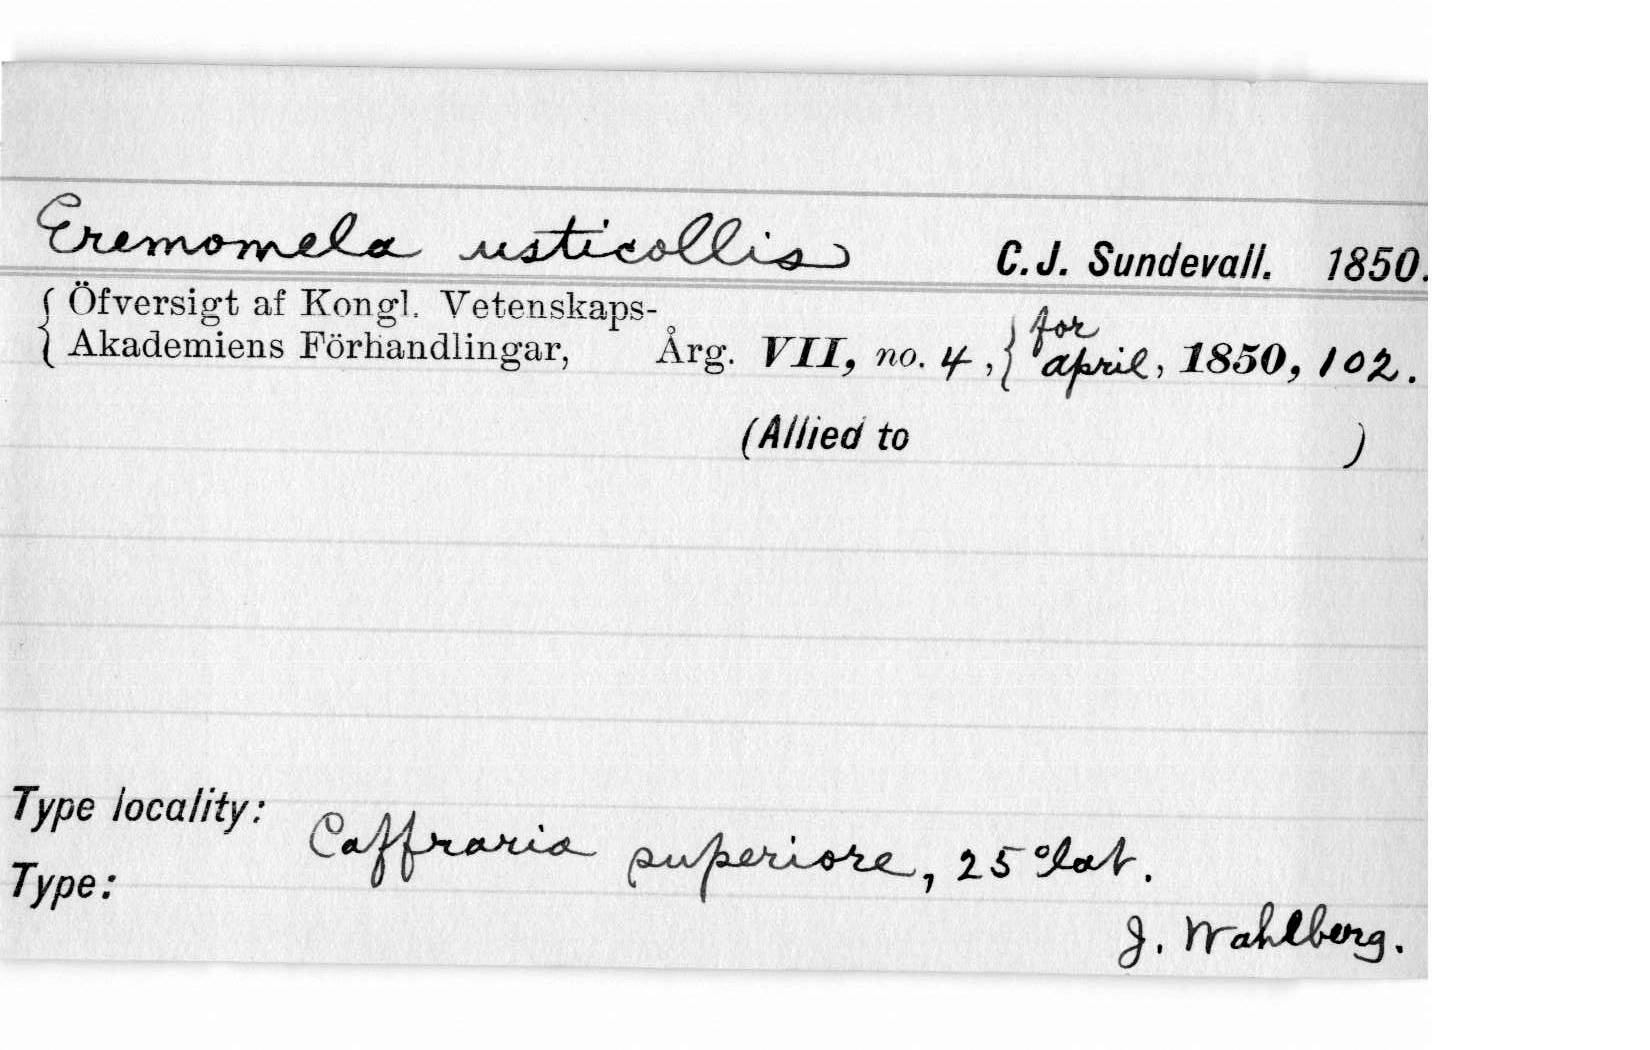 Eremomela usticollis C.J. Sundevall. 1850.
{ Öfversigt af Kongl. Vetenskaps-
Akademiens Förhandlingar, Årg. VII, no. 4, { for april, 1850, 102.
(Allied to )
Type locality: Caffraria superiore, 25° lat.
Type:
J. Wahlberg.